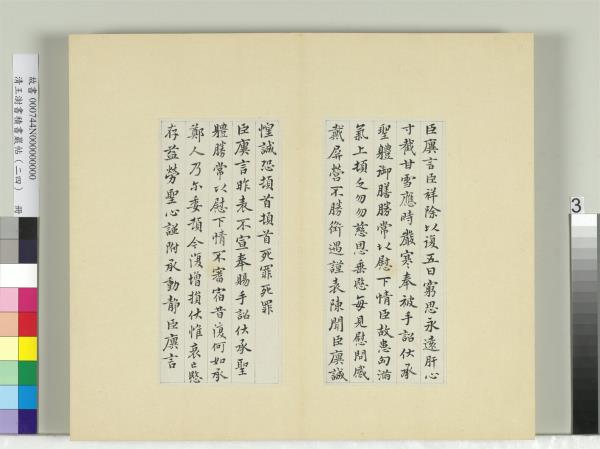 臣廙言臣祥除以復五日窮思永遠肝心
寸截甘雪應時嚴寒奉被手詔伏承
聖體御膳勝常以慰下情臣故患匈滿
氣上頓乏勿勿慈恩垂愍每見慰問感
戴屏營不勝銜遇謹表陳聞臣廙誠
惶誠恐頓首頓首死罪死罪
臣廙言昨表不宣奉賜手詔伏承聖
體勝常以慰下情不審宿昔復何如承
鄭人乃尔委頓今復增損伏惟哀亡愍
存益勞聖心謹附承動靜臣廙言
故書 000744N000000000
清王澍書積書巖帖(二四) 冊
3